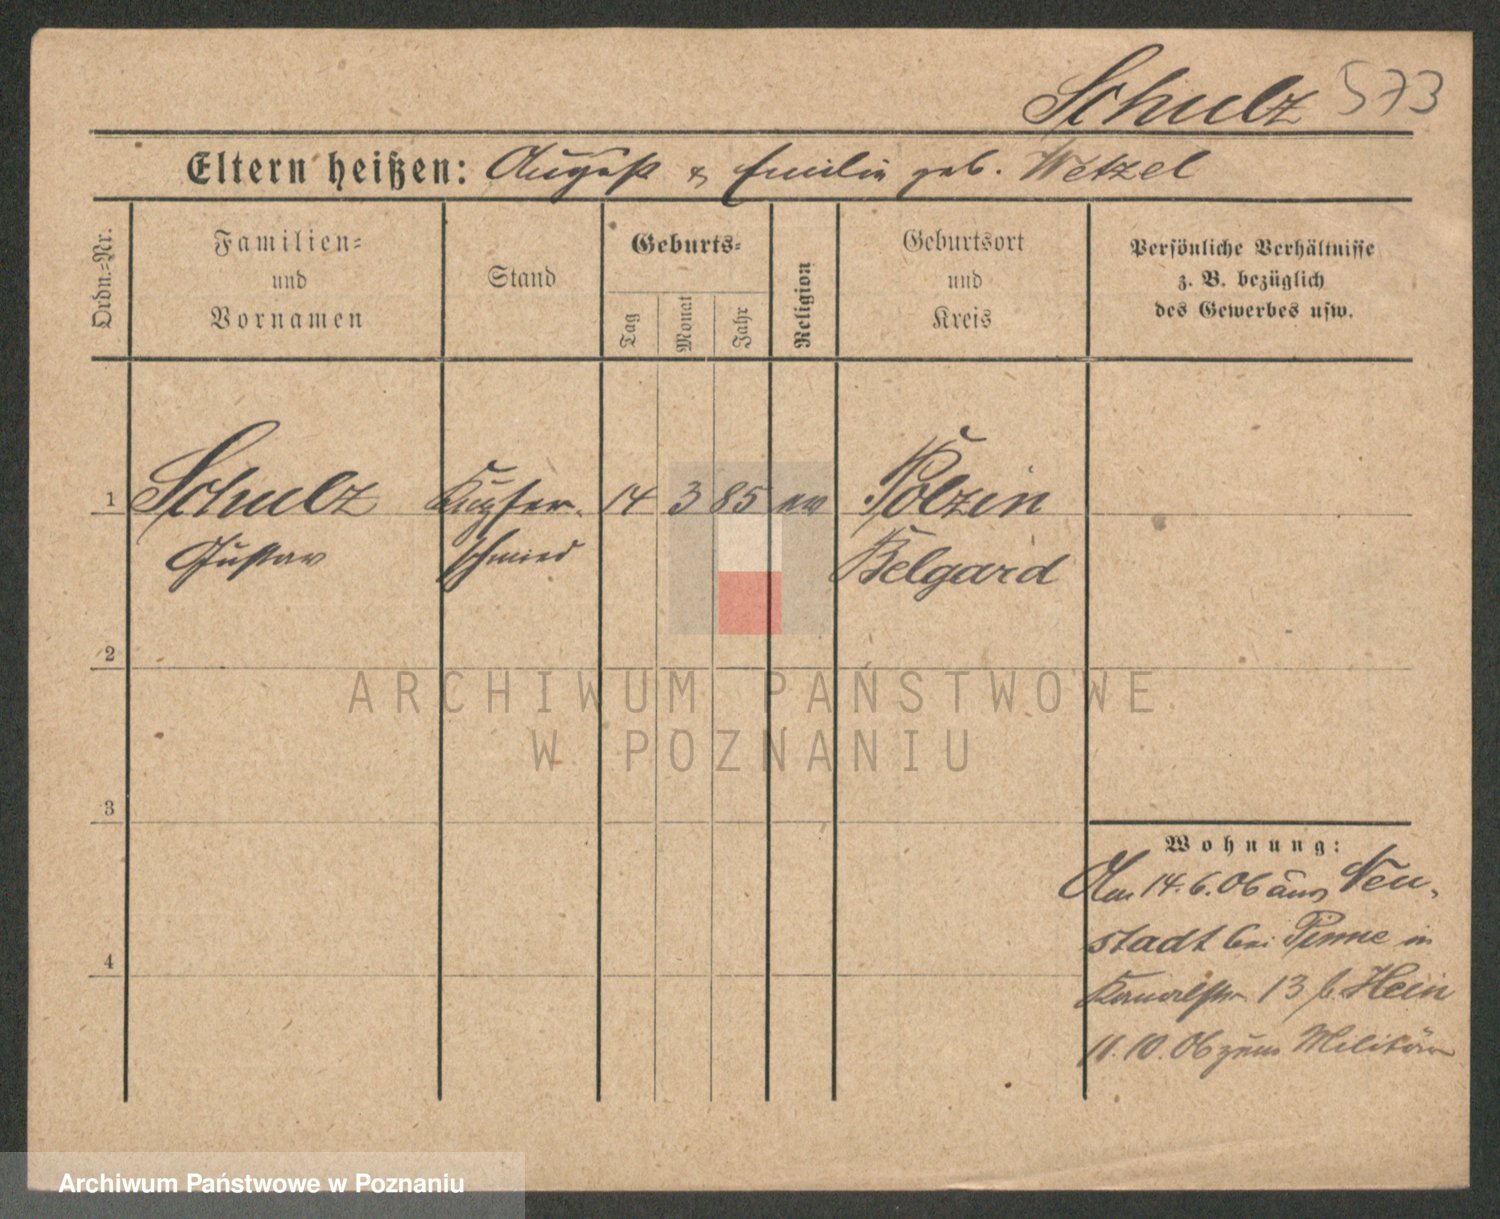 Schulz 573
Eltern heißen: August & Emilie geb. Wetzel
Ordn.-Nr.
Familien-
und
Vornamen
Stand
Geburts-
Tag
Monat
Jahr
Religion
Geburtsort
und
Kreis
Persönliche Verhältnisse
z. B. bezüglich
des Gewerbes usw.
1 Schulz Kupfer- 14 3 85 ev Polzin
Gustav schmied Belgard
2
3
4
Wohnung:
Am 14.6.06 aus Neu-
stadt bei Pinne in
Kanalstr. 13 b. Hein
11.10.06 zum Militär
ARCHIWUM PAŃSTWOWE
W POZNANIU
Archiwum Państwowe w Poznaniu